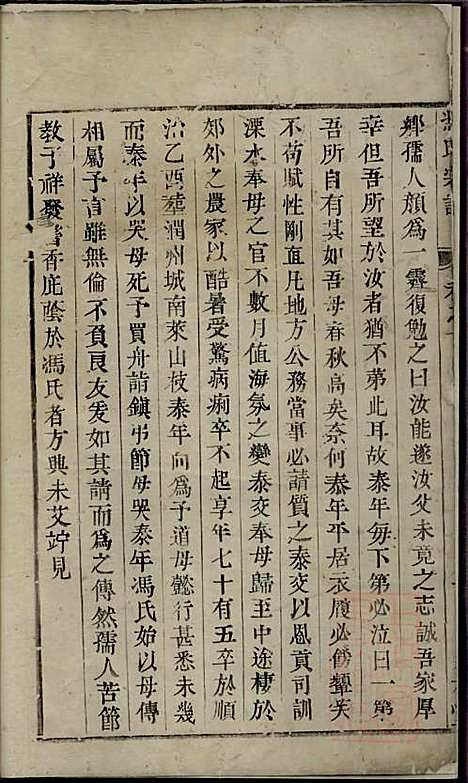 鄉孺人顏為一霽復勉之曰汝能遂汝父未竟之志誠吾家厚
幸但吾所望於汝者猶不第此耳故泰年每下第必泣曰一第
吾所自有其如吾母春秋高矣奈何泰年平居衣履必儉顰笑
不苟賦性剛直凡地方公務當事必請質之泰交以恩貢司訓
溧水奉母之官不數月值海氛之變泰交奉母歸至中途棲於
郊外之農家以酷暑受驚病痢卒不起享年七十有五卒於順
治乙酉塟潤州城南萊山枝泰年向為予道母懿行甚悉未幾
而泰年以哭母死予買舟詣鎮弔節母哭泰年馮氏始以母傳
相屬予言雖無倫不負良友爰如其請而為之傳然孺人苦節
教子祥發書香庇蔭於馮氏者方興未艾竚見
馮氏宗譜